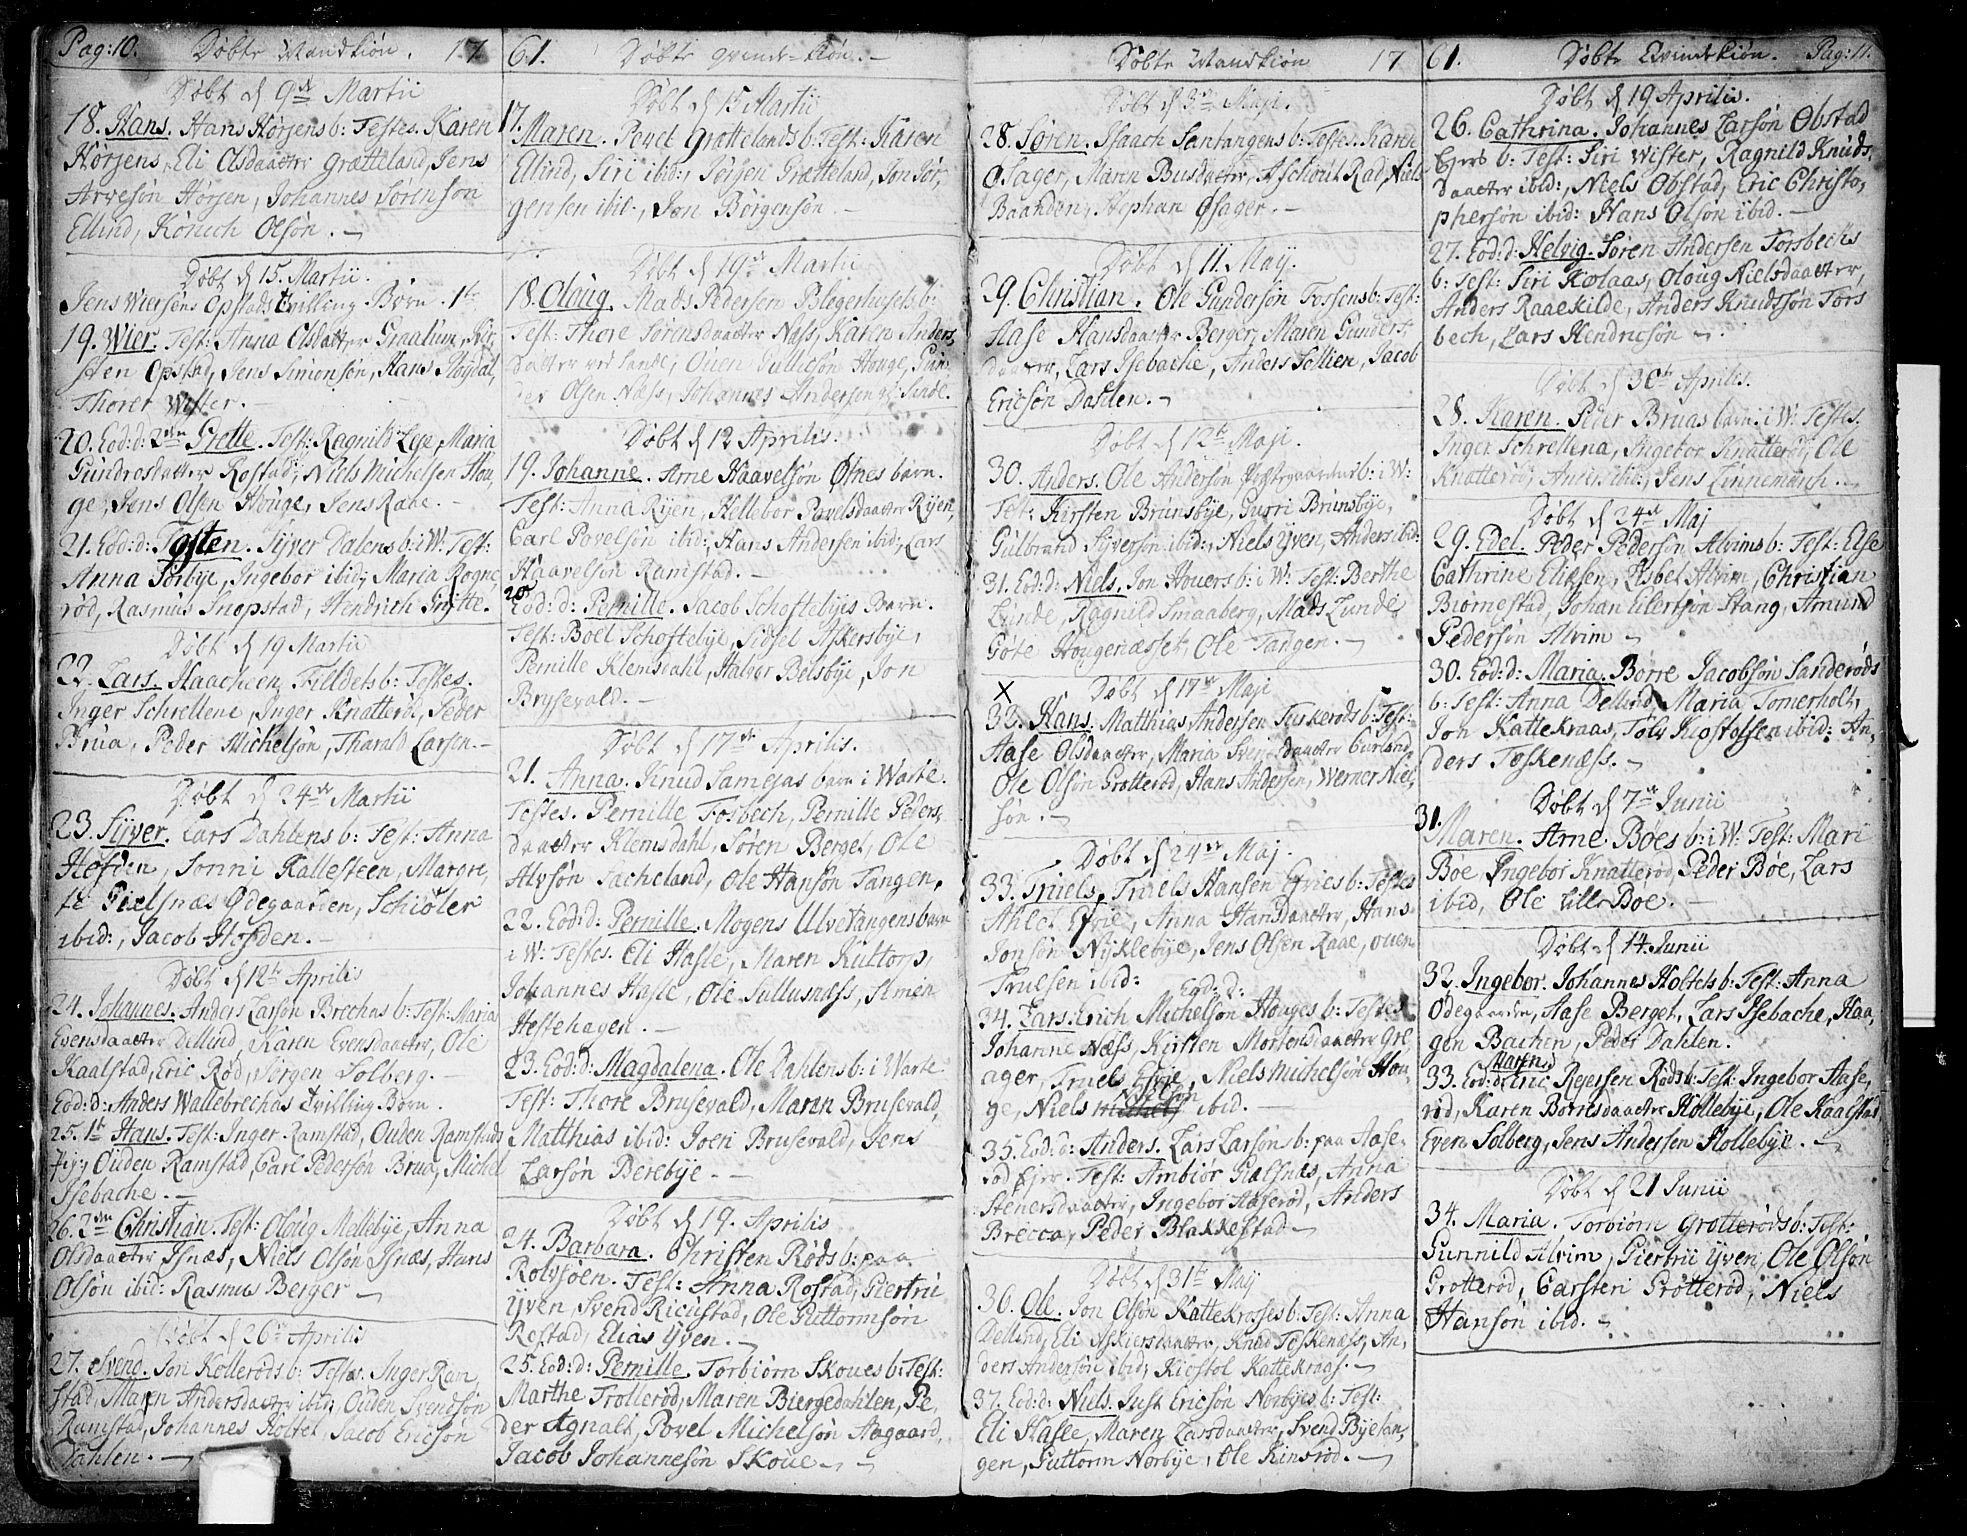 Pag: 10. Døbte Mandkiøn. 17
Døbt d 9de Martii
18. Hans. Hans Hørsens b: Testes. Karen
Hørsens, Eli Olsdaatter Grætteland, Jens
Arvesøn Hørsen, Johannes Sørensøn
Ellind, Olsøn. -
Døbt d 15. Martii.
Jens Wiersøns Opstads tvilling Børn. 1te
19. Wier. Test: Anna Olsdatter Graalum, Kir,
sten Opstad, Jens Simonsøn, Hans
Thorer Wister. -
20. Eod: d: 2den Test: Ragnild Leje, Maria
Gundrosdaatter Rostad, Niels Michelsen Hou,
ge, Jens Olsen Houge, Jens Raae. -
21. Eod: d: Tosten. Syver Dalens b: i W: Test:
Anna Sørbye, Ingebor ibid; Maria Rogne,
rød, Rasmus Inopstad, Hendrich
Døbt d 19 Martii
22. Lars. Haachen Filldets b: Testes.
Inger Schrellene, Inger Knatterød, Peder
Brua, Peder Michelsøn, Tharald Larsen. -
Døbt d 24de Martii
23. Syver. Lars Dahlens b: Test: Anna
Hofden, Jonni Kallesteen, Margre,
te Ødegaarden, Schiøler
ibid:, Jacob Hofden. -
Døbt d 12te Aprilis
24. Johannes. Anders Larsøn Brechas b: Test: Maria
Evensdaatter Dellind, Karen Evensdaatter, Ole
Kaalstad, Eric Rød, Jørgen Solberg. -
Eod: d: Anders Wallebrechas tvilling Børn.
25. 1te Hans. Test: Inger Ramstad, Ouden Ramstads
Pige, Ouden Ramstad, Carl Pedersøn Brua, Michel
Isebache. -
26. 2den Christian. Test: Oloug Mellebye, Anna
Olsdaatter Isnæs, Niels Olsøn Isnæs, Hans
Olsøn ibid: Rasmus Berger -
Døbt d 26de Aprilis
27. Svend. Jon Kollerøds b: Testes. Inger Ram,
stad, Maren Andersdaatter ibid, Ouden Svendsøn
Ramstad, Johannes Holtet, Jacob Ericsøn
Dahlen. -
61. Døbte qvind-kiøn. -
Døbt d 15 Martii
17. Maren. Povel Grættelands b: Test: Karen
Ellind, Siri ibid:, Jørgen Grætteland, Jon Jør,
gensen ibid:, Jon Børgensøn. -
Døbt d 19de Martii
18. Oloug. Mads Pedersen Pløgerhusets b:
Test: Thore Sørensdaatter Næss, Karen Anders,
daatter ved Sande, Ouen Gulliksøn Houge, Gun,
der Olsen Næss, Johannes Andersen v: Sande.
Døbt d 12 Aprilis:
19. Johanne. Arne Haavelsøn Ødnes barn.
Test: Anna Ryen, Hellebor Povelsdaatter Ryen,
Carl Povelsøn ibid:, Hans Andersen ibid, Lars
Haavelsøn Ramstad. -
20 Eod: d: Pernille. Jacob Schoftebyes Barn.
Test: Boel Schoftebye, Sidsel Askersbye,
Pernille Klemsdahl, Halvor Bølsbye, Jon
Brysevald. -
Døbt d 17de Aprilis.
21. Anna. Knud Samejas barn i Warte.
Testes. Pernille Fosbech, Pernille Peders,
daatter Klemsdahl, Søren Berget, Ole
Alvsøn Sacheland, Ole Hansøn Tangen.
22. Eod: d: Pernille. Mogens Ulvetangens barn
i W: Testes. Eli Hasle, Maren Kultorp,
Johannes Hasle, Ole Sullusnæss, Simen
Hestehagen. -
23. Eod: d: Magdalena. Ole Dahlens b: i Warte
Test: Thore Brusevald, Maren Brusevald,
Matthias ibid: Joen Brusevald, Jens
Larsøn Berebye -
Døbt d 19. Aprilis
24. Barbara. Christen Røds b: paa
Rolvsøen. Test: Anna Rostad, Giertrü
Yven, Svend Ricustad, Ole Guttormsøn
Rostad, Elias Yven. -
25. Eod: d: Pernille. Torbiørn Skoues b: Test:
Marthe Trollerød, Maren Biergedahlen, Pe,
der Agnalt, Povel Michelsøn Aagaard,
Jacob Johannesøn Skoue -
Døbte Mandkiøn 17
Døbt d 3de Maji.
28. Søren. Isaach Santangens b: Testes. Karen
Øsager, Maren Busdatter, Aschout Rad, Niels
Baanden, Stephan Øsager. -
Døbt d 11. Maij.
29. Christian. Ole Gundersøn Fossens b: Test:
Aase Hansdaatter Berger, Maren Gunders,
daatter, Lars Isebache, Anders Sollien, Jacob
Ericsøn Dahlen. -
Døbt d 12te Maji.
30. Anders. Ole Andersøn b: i W:
Test: Kirsten Brunsbye, Gurri Brunsbye,
Gulbrand Syversøn ibid:, Niels Yven, Anders ibid:
31. Eod: d: Niels. Jon Houers b: i W: Test: Berthe
Lunde, Ragnild Smaaberg, Mads Lunde
Gøte Hougenæsset, Ole Tangen. -
X Døbt d 17de Maji
33. Hans. Matthias Andersen Tuskerøds b: Test:
Aase Olsdaatter, Maria daatter Gurland,
Ole Olsøn Grotterød, Hans Andersen, Werner Niel,
søn. -
Døbt d 24de Maj.
33. Truels. Truels Hansen Efries b: Testes
Ahlet Efrie, Anna Hansdaatter, Hans
Jonsøn Nyklebye, Jens Olsen Raae, ouen
Truelsen ibid: Eod: d:
34. Lars. Erich Michelsøn Houges b: Testes
Johanne Næss, Kirsten Mortensdaatter Gre,
ager, Truels Efrie, Niels Michelsøn Hou,
ge, Niels ibid. -
35. Eod: d: Anders. Lars Larsøns b: paa Aase,
rød Ejer. Test: Ambiør Anna
Stenersdaatter, Ingebor Aaserød, Anders
Brecca, Peder Blakkestad -
Døbt d 31te Maij
36. Ole. Jon Olsøn Kattekrosses b: Test: Anna
Dellind, Eli Askiersdaatter, Knud Toskenæss, An,
ders Andersøn ibid; Kiostol Kattekraas. -
37. Eod: d: Niels. Just Ericsøn Norbyes b: Test:
Eli Hasle, Maren Larsdaatter, Svend Byesan,
gen, Guttorm Norbye, Ole Kinsrød. -
61. Døbte Qvindkiøn. Pag: 11.
Døbt d 19 Aprilis.
26. Cathrina. Johannes Larsøn Obstad
Ejers b: Test: Siri Wister, Ragnild Knuds,
daatter ibid:, Niels Obstad, Eric Christo,
phersøn ibid: Hans Olsøn ibid. -
27. Eod: d: Helvig. Søren Andersen Torsbechs
b: Test: Siri Oloug Nielsdaatter,
Anders Raaekilde, Anders Knudssøn Tors
bech, Lars Hendricsøn -
Døbt d 30te Aprilis.
28. Karen. Peder Bruas barn i W: Testes.
Inger Schrellena, Ingebor Knatterød, Ole
Knatterød, Anders ibid:, Jens Linnemarch. -
Døbt d 24de Maj
29. Edel. Peder Pedersøn Alvims b: Test: Else
Cathrine Eliesen, Elsbet Alvim, Christian
Biørnestad, Johan Eilertsøn Stang, Amund
Pedersøn Alvim -
30. Eod: d: Maria. Borre Jacobsøn Sanderøds
b: Test: Anna Dellind, Maria Tomerholt,
Jon Kattekraas, Tolv Kiostolsen ibid: An,
ders Toskenæss. -
Døbt d 7de Junii
31. Maren. Arne Bøes b: i W: Test: Mari
Bøe, Ingebor Knatterød, Peder Bøe, Lars
ibid, Ole Lille Bøe. -
Døbt d 14. Junii
32. Ingebor. Johannes Holtets b: Test: Anna
Ødegaarden, Aase Berget, Lars Isebache, Haa,
gen Bachen, Peder Dahlen.
Maren.
33. Eod: d: Eric Rejersen Røds b: Test: Ingebor Aase,
rød, Karen Børresdaatter Hollebye, Ole Kaalstad,
Even Solberg, Jens Andersen Hollebye. -
Døbt d 21 Junii
34. Maria. Torbiørn Grotterøds b: Test:
Gunnild Alvim, Giertrü Yven, Ole Olsøn
Grotterød, Carsten Grotterød, Niels
Hansøn ibid. -